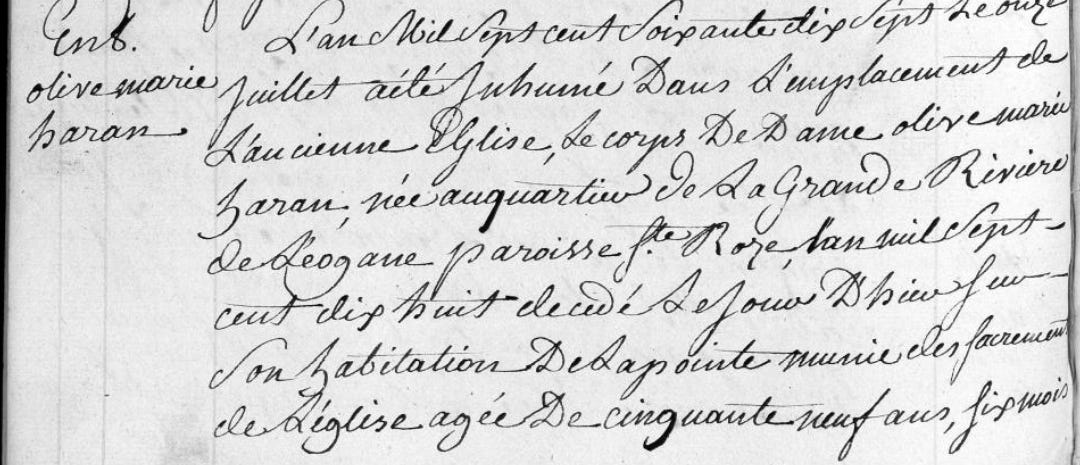 Ent.
olive marie
haran
L'an Mil Sept cent Soixante dix Sept Le onze
Juillet a été Inhumé Dans L'emplacement de
L'ancienne Eglise, Le corps De Dame olive marie
haran, née au quartier de La Grande Riviere
de Léogane paroisse Ste Roze, l'an mil Sept-
cent dix huit decedé Le Jour D'hier Sur
Son habitation De La pointe munie des Sacrement
de L'église agée De cinquante neuf ans, Six mois